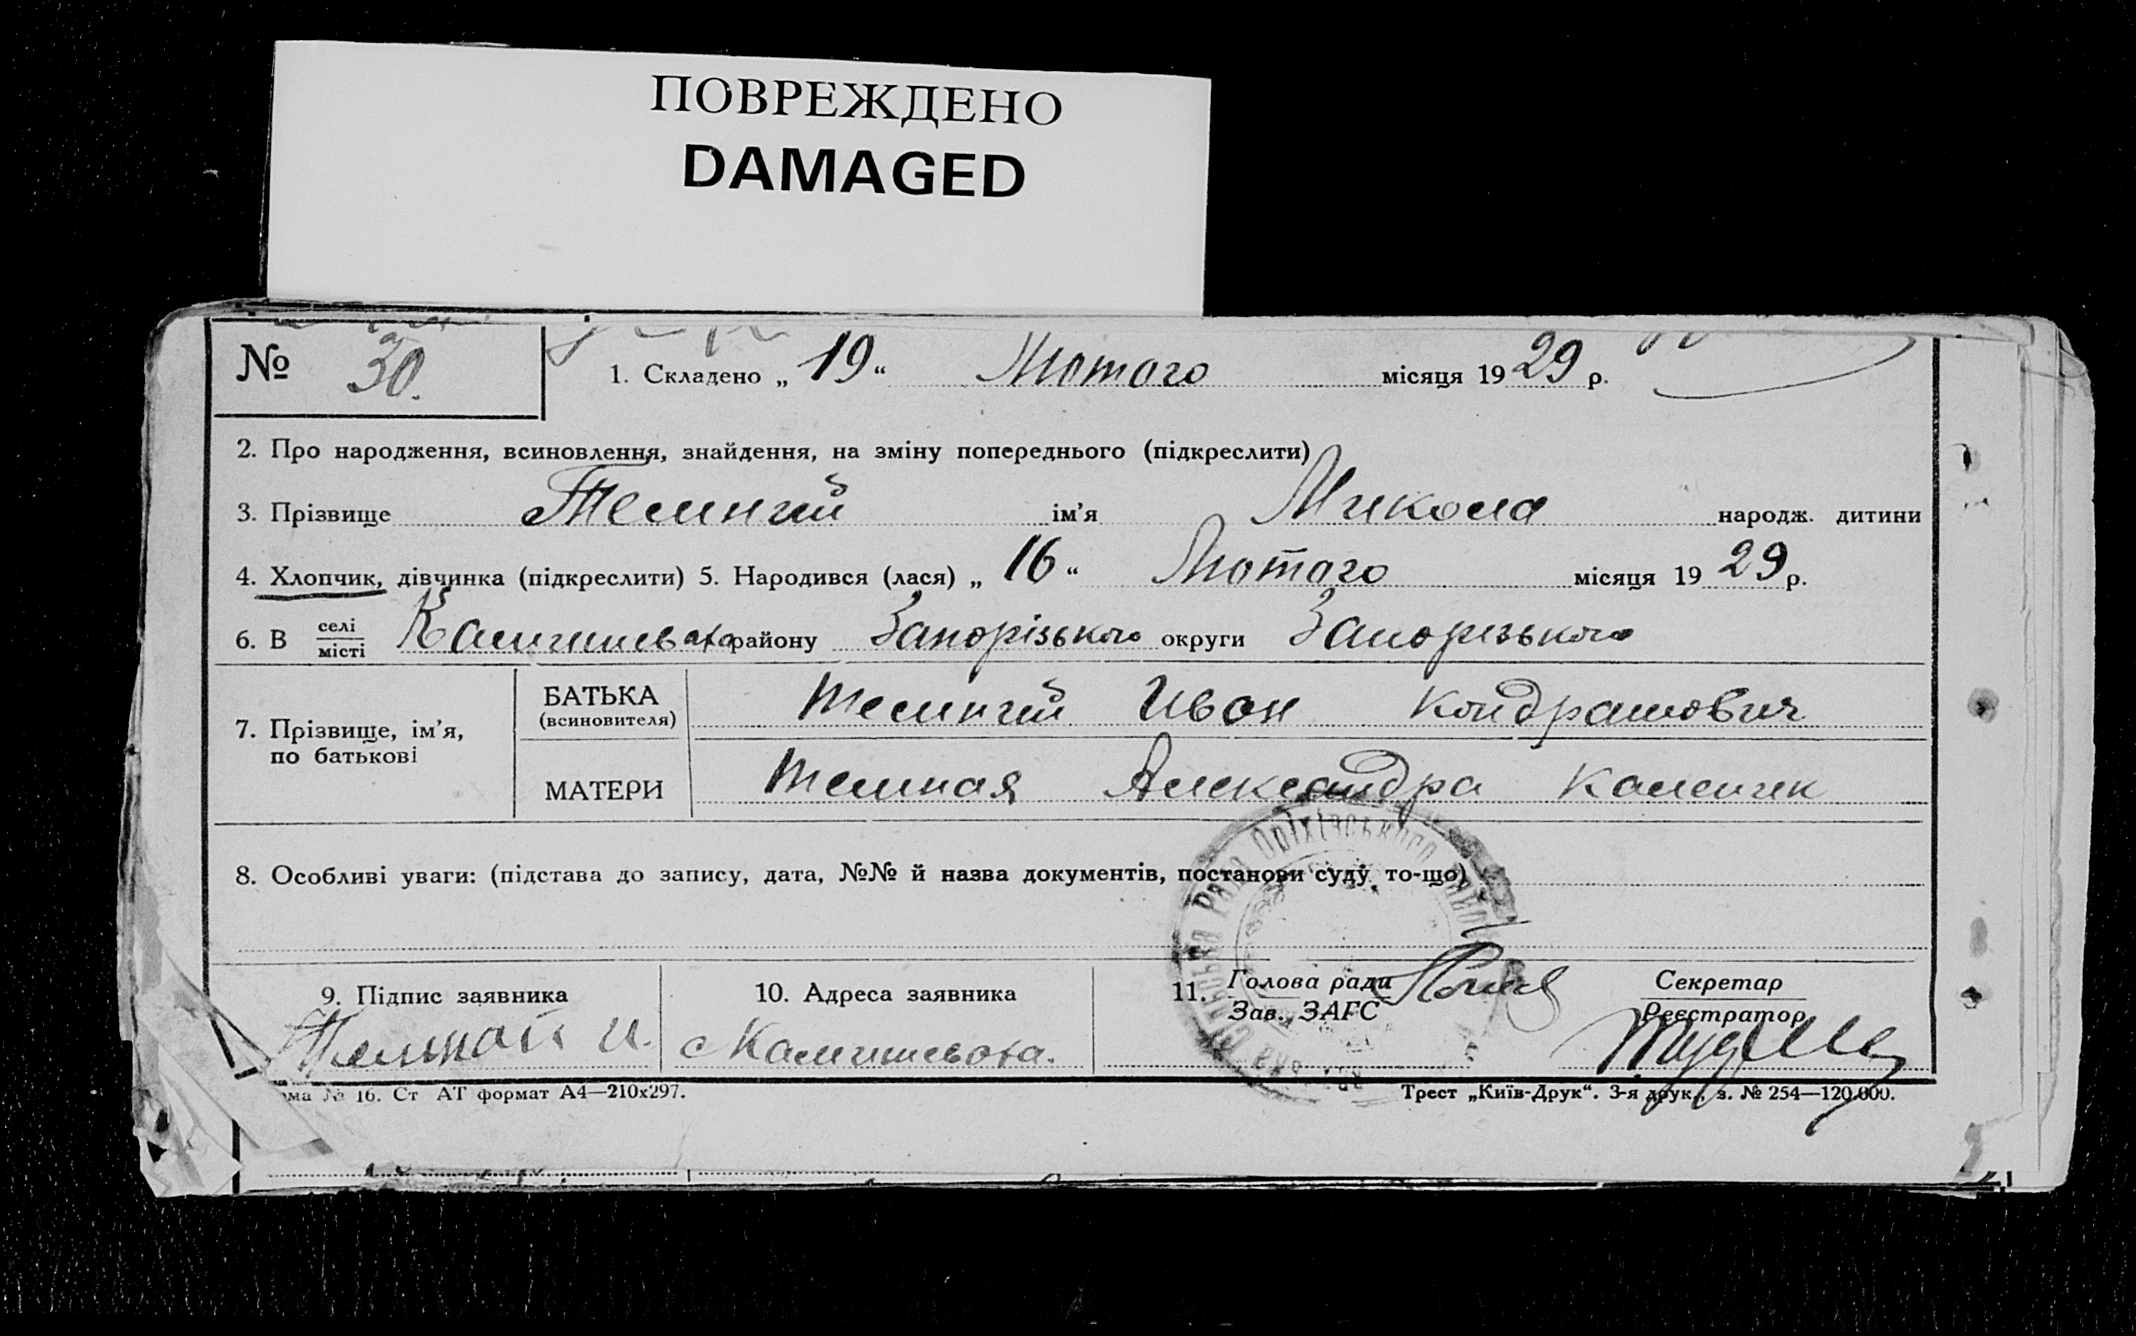 ПОВРЕЖДЕНО
DAMAGED
№ 30. 1. Складено „19“ Лютого місяця 1929 р.
2. Про народження, всиновлення, знайдення, на зміну попереднього (підкреслити)
3. Прізвище Темнгий ім'я Микола народж. дитини
4. Хлопчик, дівчинка (підкреслити) 5. Народився (лася) „16“ Лютого місяця 1929 р.
6. В селі місті Камишеваха району Запорізького округи Запорізького
7. Прізвище, ім'я, по батькові
БАТЬКА (всиновителя) Иван Кондратович
МАТЕРИ Темная Александра
8. Особливі уваги: (підстава до запису, дата, №№ й назва документів, постанови суду, то-що)
9. Підпис заявника 10. Адреса заявника 11. Голова ради Зав. ЗАГС Секретар Реєстратор
И. с Камишеваха.
Рада Оріхівського
№ 16. Ст АТ формат А4—210х297. Трест „Київ-Друк“. 3-я друк., з. № 254—120.000.